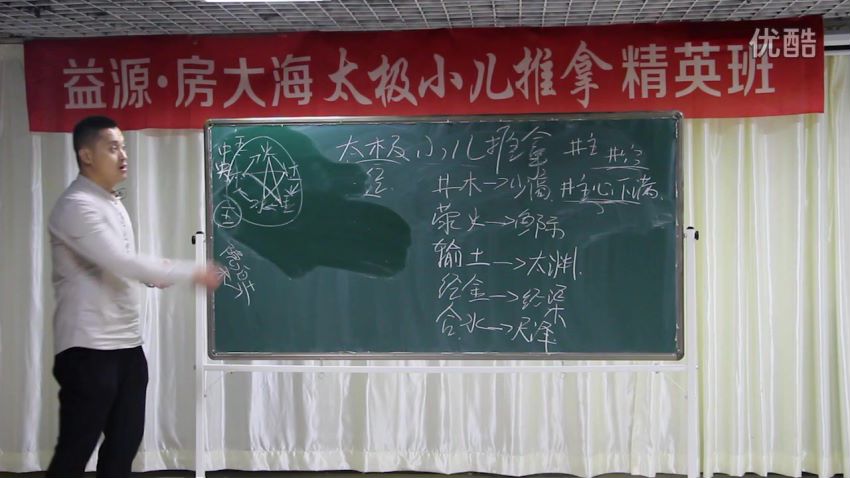 优酷
益源·房大海太极小儿推拿精英班
太极小儿推拿
井木→少商 井主心下满
荥火→鱼际
输土→太渊
经金→经渠
合水→尺泽
木
土
金
水